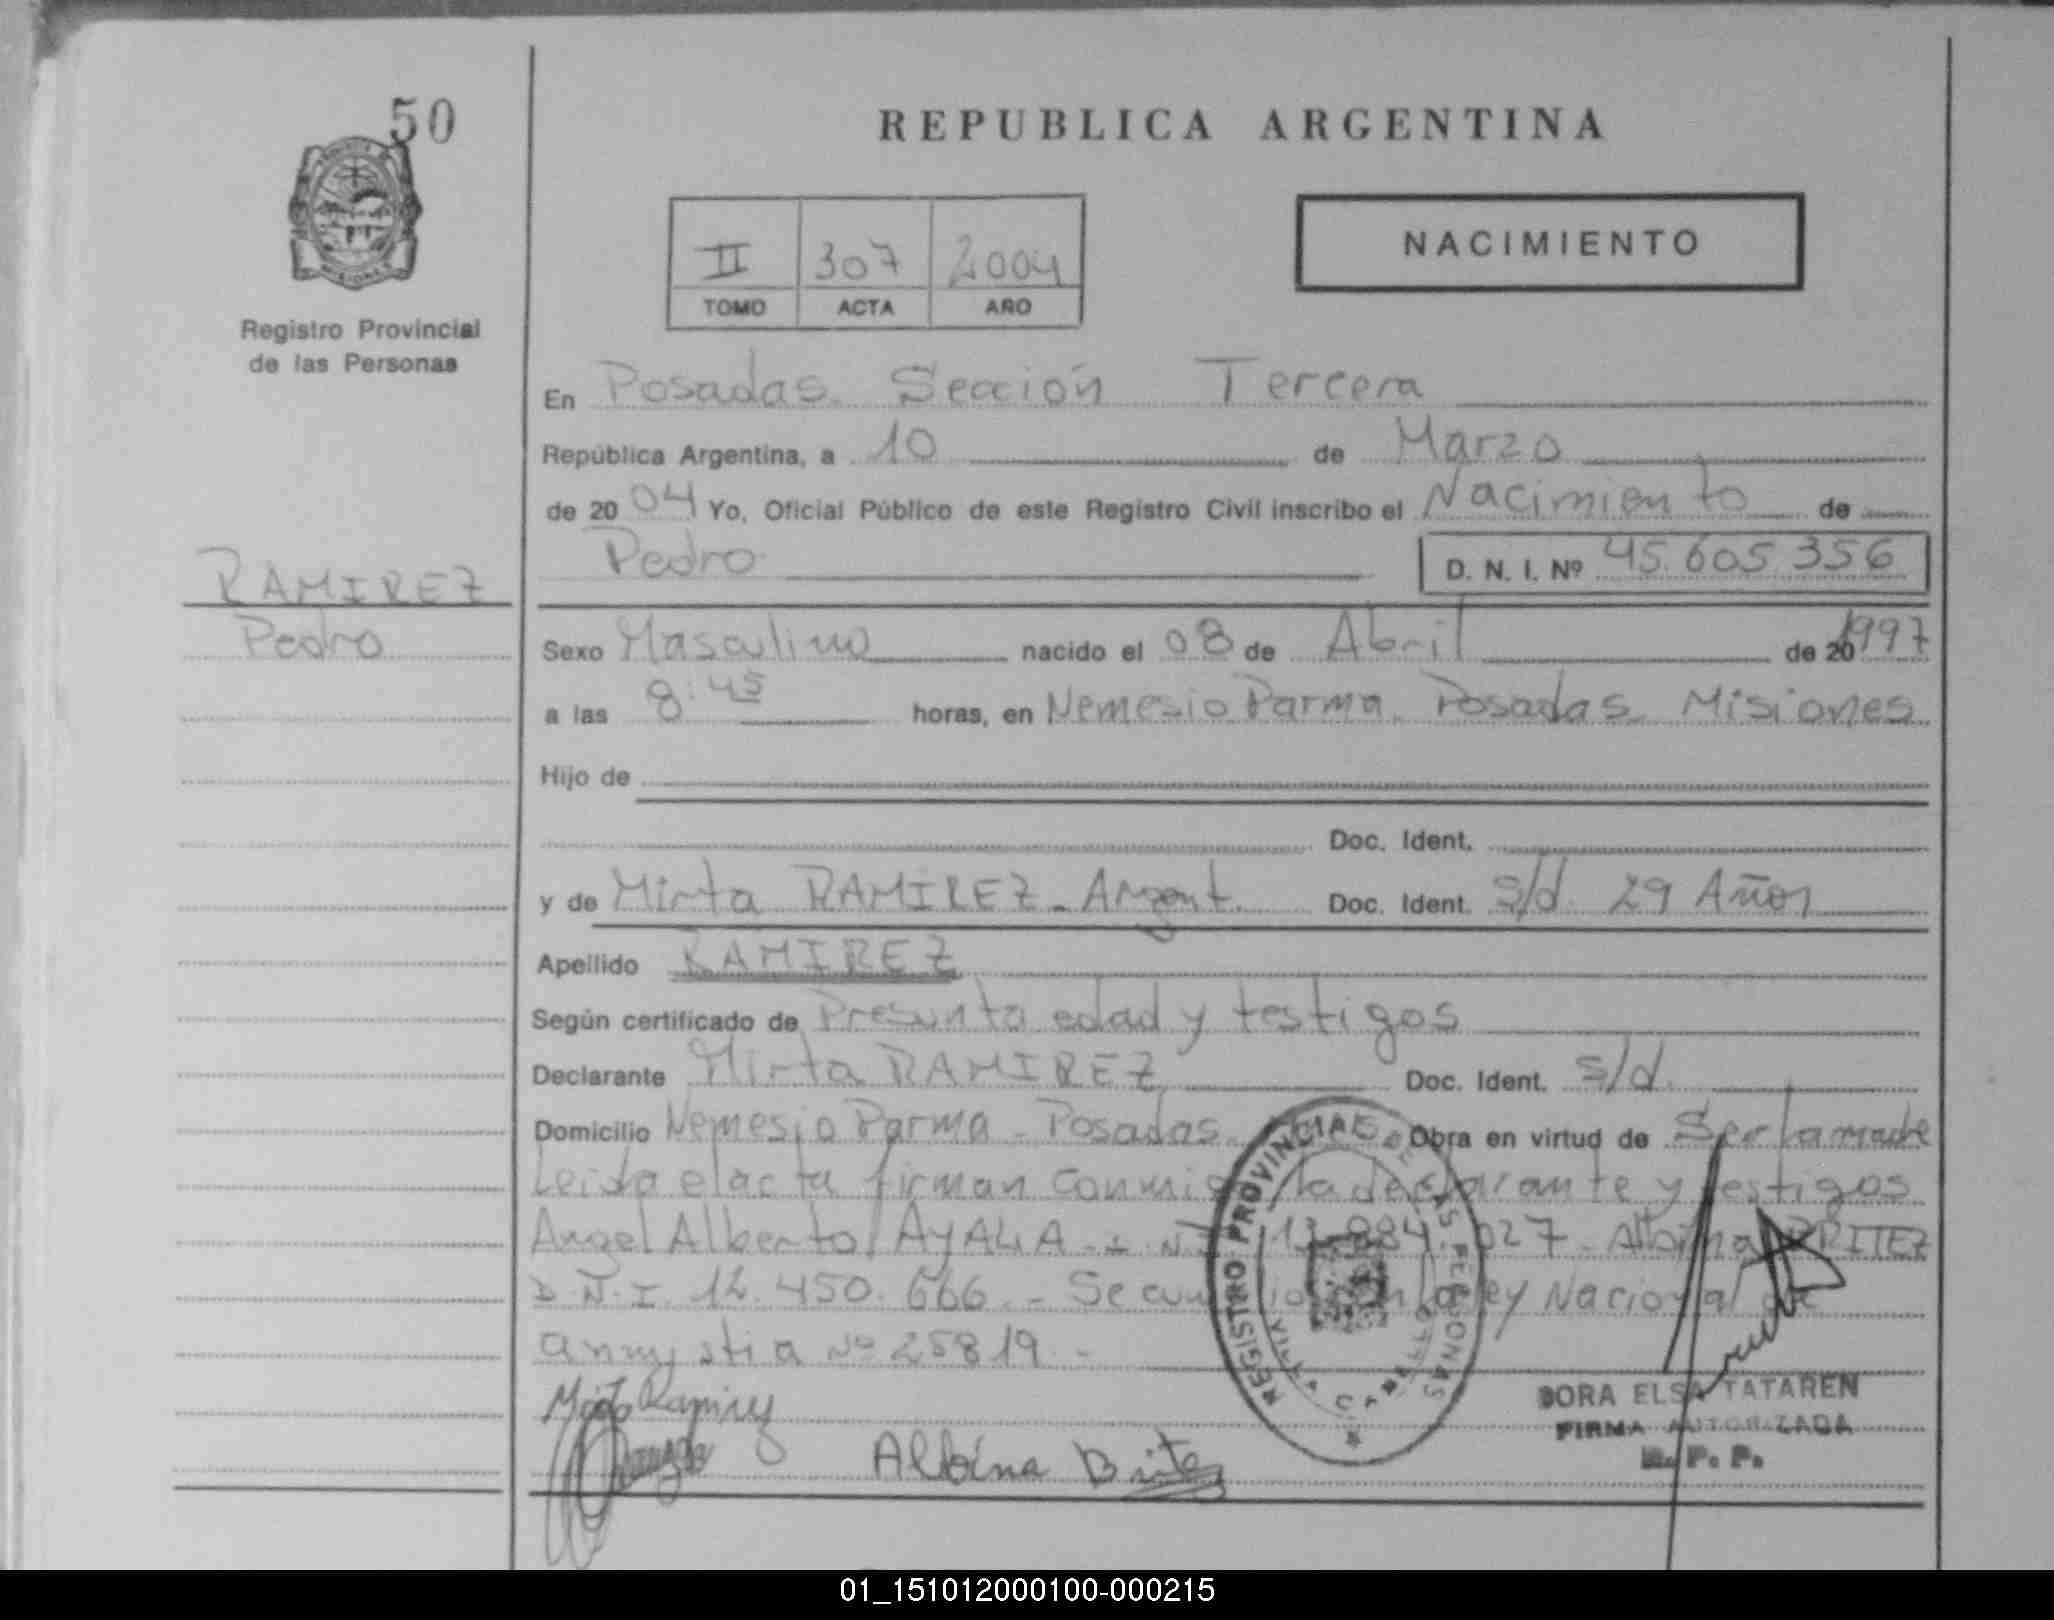 50
REPUBLICA ARGENTINA
II 307 2004
TOMO ACTA AÑO
NACIMIENTO
Registro Provincial
de las Personas
En Posadas Sección Tercera
República Argentina, a 10 de Marzo
de 2004 Yo, Oficial Público de este Registro Civil inscribo el Nacimiento de
Pedro D. N. I. Nº 45.605356
RAMIREZ
Pedro
Sexo Masculino nacido el 08 de Abril de 20 1997
a las 8:45 horas, en Nemesio Parma. Posadas. Misiones
Hijo de
Doc. Ident.
y de Mirta RAMIREZ - Argent. Doc. Ident. s/d. 29 Años
Apellido RAMIREZ
Según certificado de Presunta edad y testigos
Declarante Mirta RAMIREZ Doc. Ident. s/d.
Domicilio Nemesio Parma - Posadas. Obra en virtud de Ser la madre
Leida el acta firman conmigo la declarante y testigos
Angel Alberto AYALA - 13.884.027 - Albina BRITEZ
D.N.I. 12.450.666. - Se cumplio con la ley Nacional de
annystia Nº 25819. -
Mirta Ramirez
Albina Britez
REGISTRO PROVINCIAL DE LAS PERSONAS
DORA ELSA TATAREN
FIRMA AUTORIZADA
R. P. P.
01_151012000100-000215